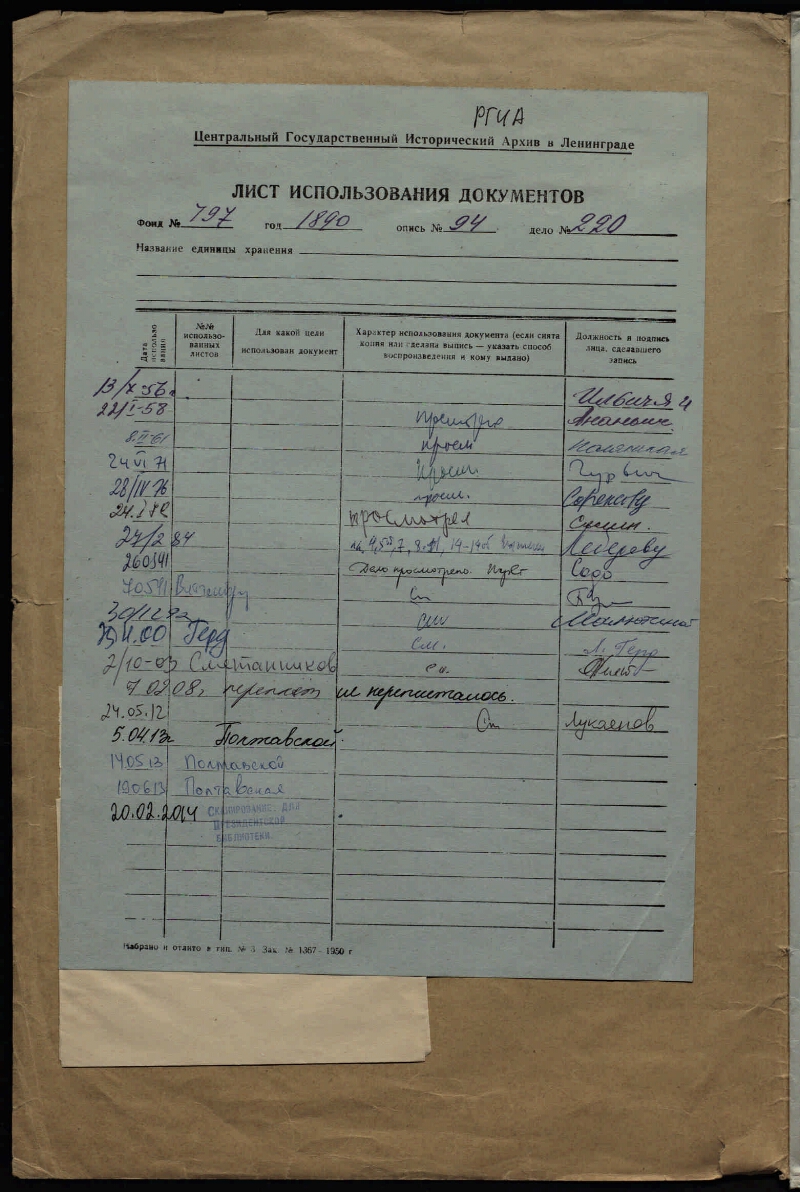 РГИА
Центральный Государственный Исторический Архив в Ленинграде
ЛИСТ ИСПОЛЬЗОВАНИЯ ДОКУМЕНТОВ
Фонд № 797 год 1890 опись № 94 дело № 220
Название единицы хранения
Дата использования
№№ использо-ванных листов
Для какой цели использован документ
Характер использования документа (если снята копия или сделана выпись — указать способ воспроизведения и кому выдано)
Должность и подпись лица, сделавшего запись
13/X-56г.
22/I-58 просмотр
8.II-61 просм
24 VI 71 Просм. Гурвич
28/IV 76 просм.
просмотрел
27/2 84
260391 Дело просмотрено.
См
30/12 92 см
Герд см. Л. Герд
2/10-03 Сметанников см.
7.02.08г. переплет не переплеталось.
24.05.12 См Лукоенов
5.04.13г Полтавской
14 05 13 Полтавской
19 06 13 Полтавская
20.02.2014 СКАНИРОВАНИЕ ДЛЯ
ПРЕЗИДЕНТСКОЙ
БИБЛИОТЕКИ.
Набрано и отлито в тип. № 3 Зак. № 1367—1950 г